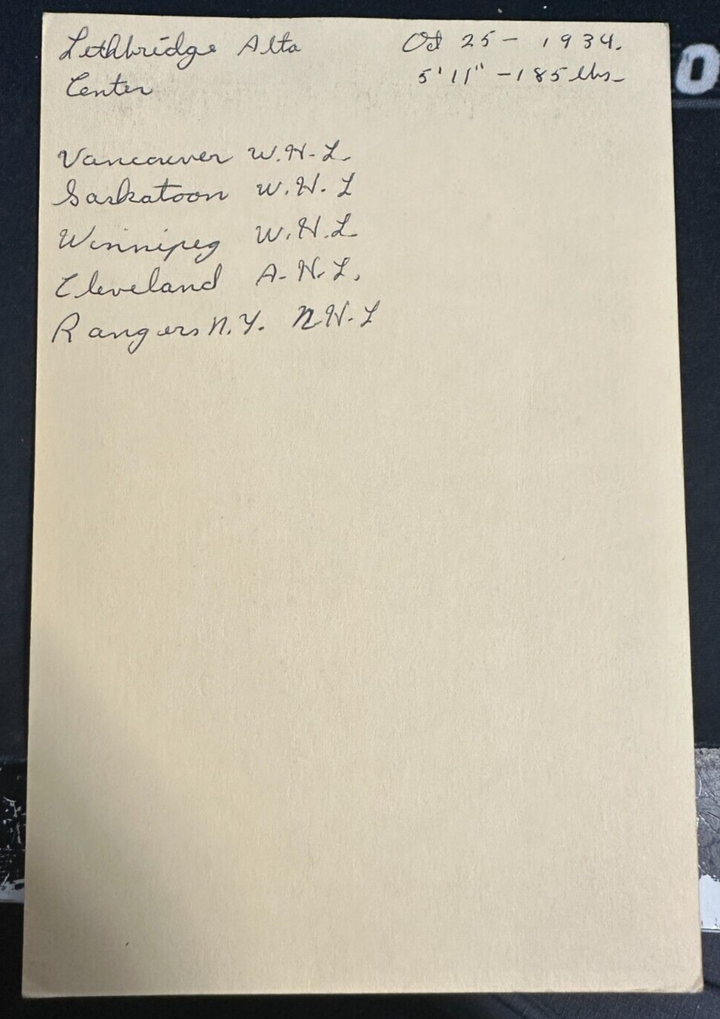 Lethbridge Alta Oct 25 - 1934.
Center 5'11" - 185 lbs-
Vancouver W.H-L.
Saskatoon W.H.L
Winnipeg W.H.L
Cleveland A-H.L.
Rangers N.Y. NH-L